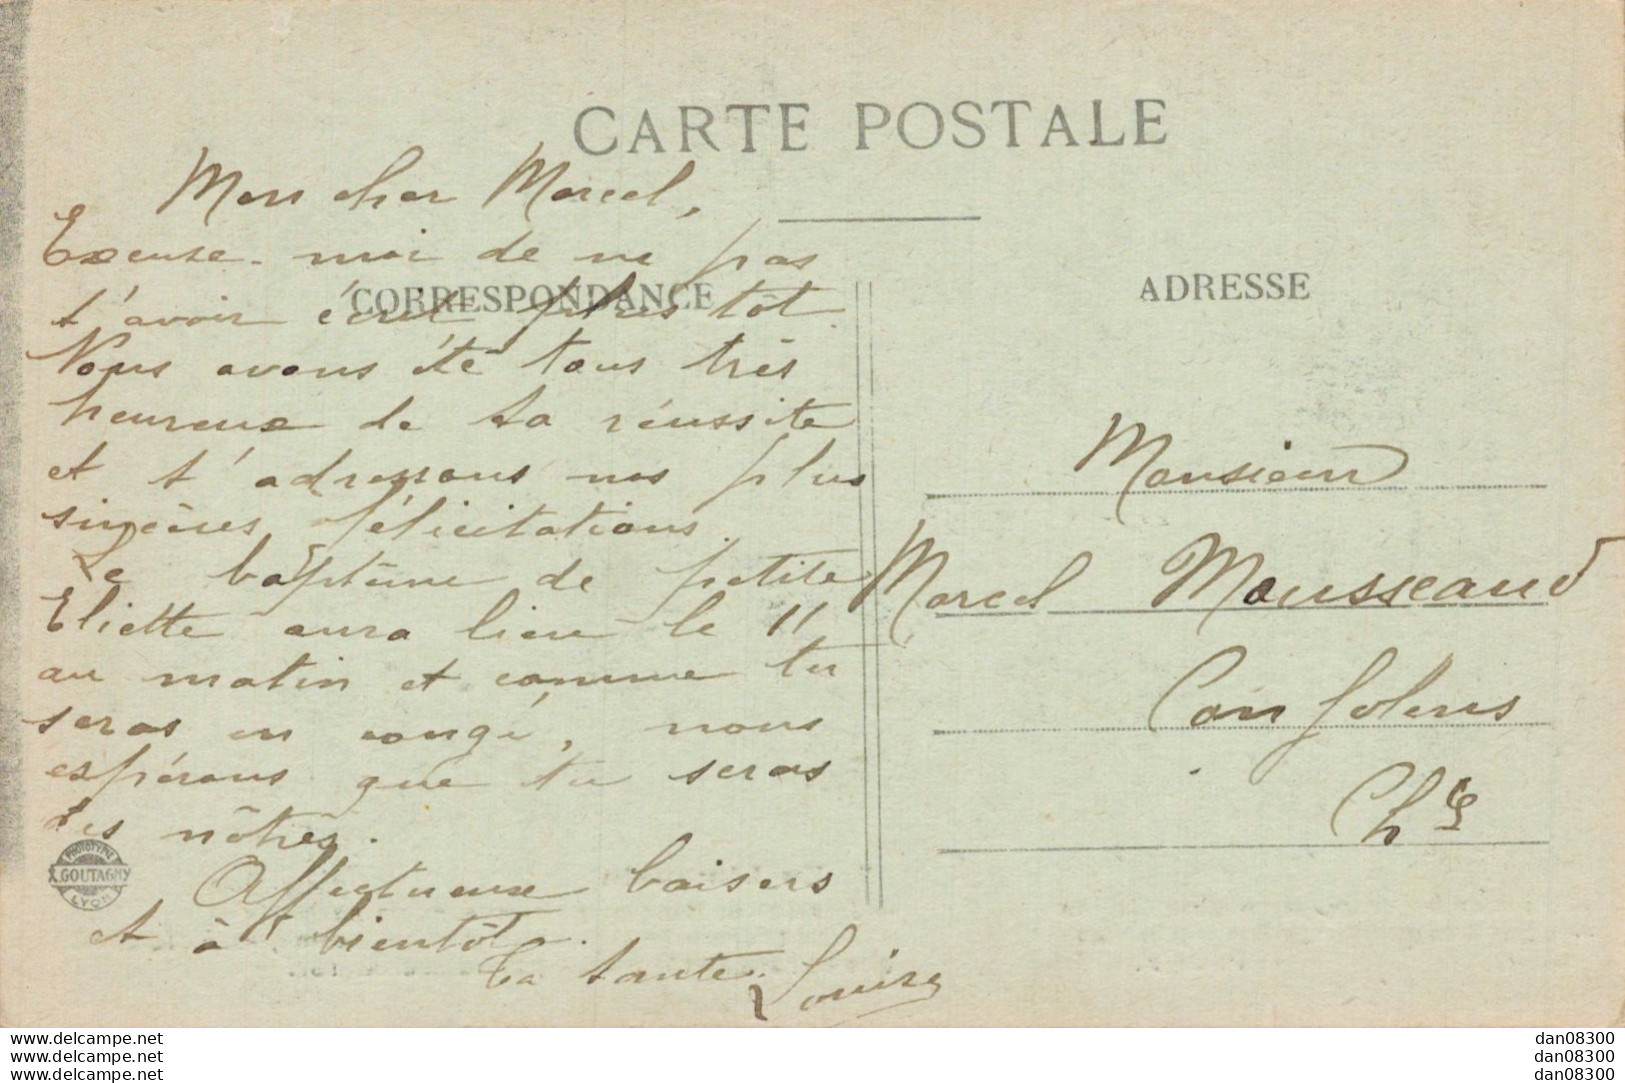 CARTE POSTALE
Mon cher Marcel,
Excuse-moi de ne pas
CORRESPONDANCE
t'avoir écrit plus tôt.
Nous avons été tous très
heureux de ta réussite
et t'adressons nos plus
sincères félicitations.
Le baptême de petite
Eliette aura lieu le 11
au matin et comme tu
seras en congé, nous
espérons que tu seras
des nôtres.
Affectueux baisers
et à bientôt.
Ta tante Louise
PHOTOTYPIE
A. GOUTAGNY
LYON
ADRESSE
Monsieur
Marcel Mousseaud
Confolens
Chte
www.delcampe.net
www.delcampe.net
www.delcampe.net
dan08300
dan08300
dan08300